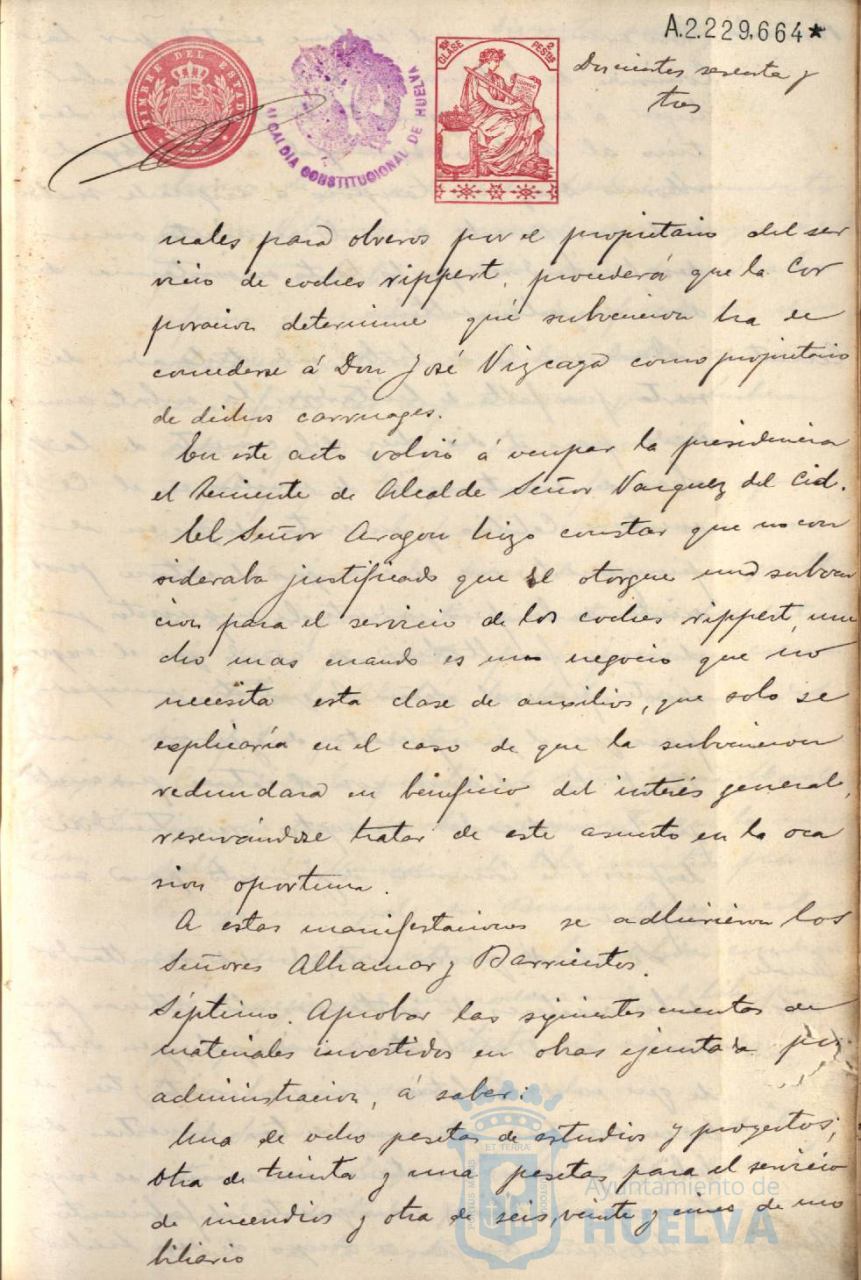 A.2.229.664*
TIMBRE DEL ESTADO
ALCALDIA CONSTITUCIONAL DE HUELVA
CLASE
PESETAS
Doscientos sesenta y
tres
nales para obreros por el propietario del ser
vicio de coches rippert, procederá que la Cor
poracion determine qué subvencion ha de
concederse á Don José Vizcaya como propietario
de dichos carruages.
En este acto volvió á ocupar la presidencia
el teniente de Alcalde Señor Vazquez del Cid.
El Señor Aragon hizo constar que no con
sideraba justificado que se otorgue una subven
cion para el servicio de los coches rippert, mu
cho mas cuando es un negocio que no
necesita esta clase de auxilios, que solo se
explicaría en el caso de que la subvencion
redundara en beneficio del interés general,
reservándose tratar de este asunto en la oca
sion oportuna.
A estas manifestaciones se adhirieron los
Señores Alhamar y Barrientos.
Séptimo. Aprobar las siguientes cuentas de
materiales invertidos en obras ejecutadas por
administracion, á saber:
Una de ocho pesetas de estudios y proyectos;
otra de treinta y una pesetas para el servicio
de incendios y otra de seis, veinte y cinco de mo
biliario
ET TERRA
Ayuntamiento de
HUELVA